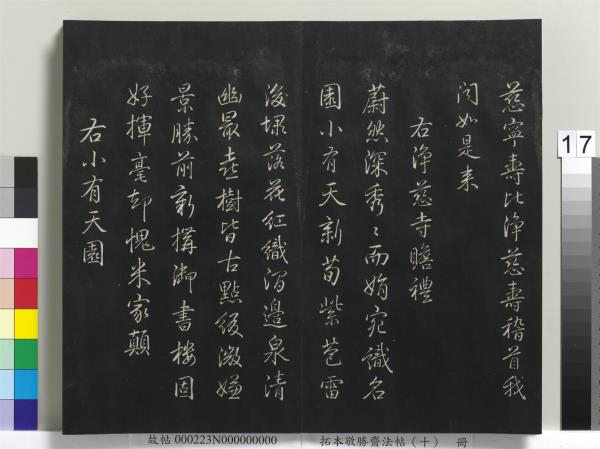 慈寧壽比淨慈壽稽首我
聞如是來
右淨慈寺瞻禮
蔚然深秀秀而娟宛識名
園小有天新筍紫苞雷
後堞落花紅織澗邊泉清
幽最喜樹皆古點綴激嫌
景勝前新構御書樓固
好揮毫却愧米家顛
右小有天園
17
故帖 000223N000000000
拓本敬勝齋法帖（十） 冊